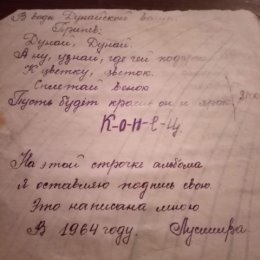 В воды Дунайской волны.
Припев:
Дунай, Дунай.
А ну, узнай, где чей подарок
К цветку, цветок.
Сплетай венок
Пусть будет красив он и ярок. 2 раза
К-О-Н-Е-Ц.
На этой строчке альбома
я оставляю подпись свою.
Это написана мною
В 1964 году.